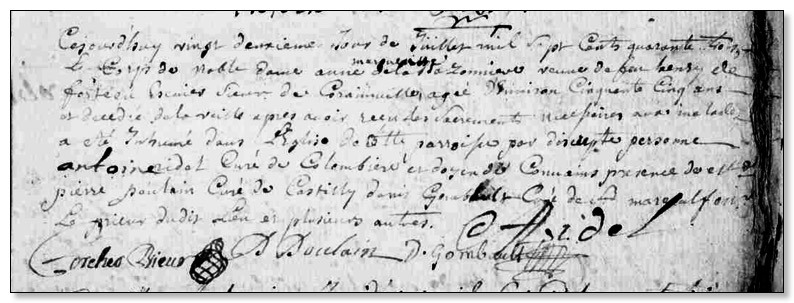 Cejourdhuy vingt deuxieme Jour de Juillet mil sept cents quarante trois
Le Corps de noble dame anne marguerite de la veuve de feu henry de
Ecuier Sieur de agée Denviron Cinquante Cinq ans
et decedée de la veille apres avoir receu les sacrements necessaires a sa maladie
a eté Inhumé dans L'Eglise de cette parroise par discrete personne
antoine ridel Curé de Colombiere et doyen de presence de
pierre poulain Curé de Castilly denis Gombault Curé de marc
Le prieur dudit Lieu et plusieurs autres.
A Ridel
Prieur D Poulain D. Gombault